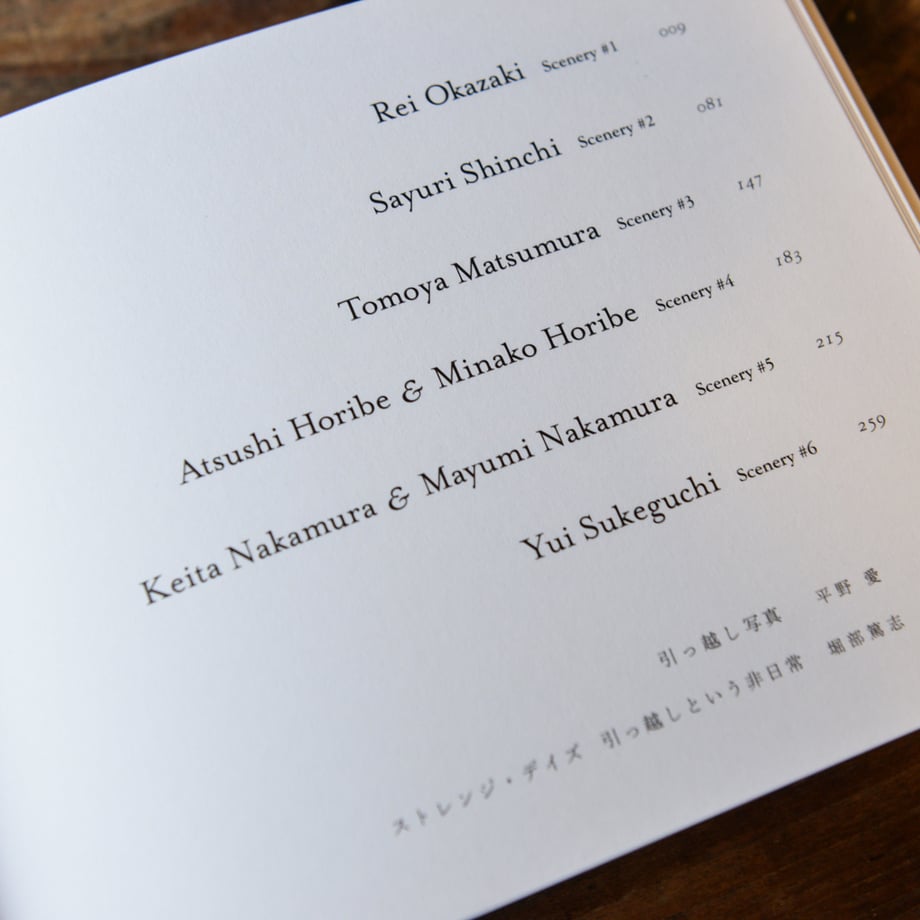 Rei Okazaki Scenery #1 009
Sayuri Shinchi Scenery #2 081
Tomoya Matsumura Scenery #3 147
Atsushi Horibe & Minako Horibe Scenery #4 183
Keita Nakamura & Mayumi Nakamura Scenery #5 215
Yui Sukeguchi Scenery #6 259
引っ越し写真 平野 愛
ストレンジ・デイズ 引っ越しという非日常 堀部篤志